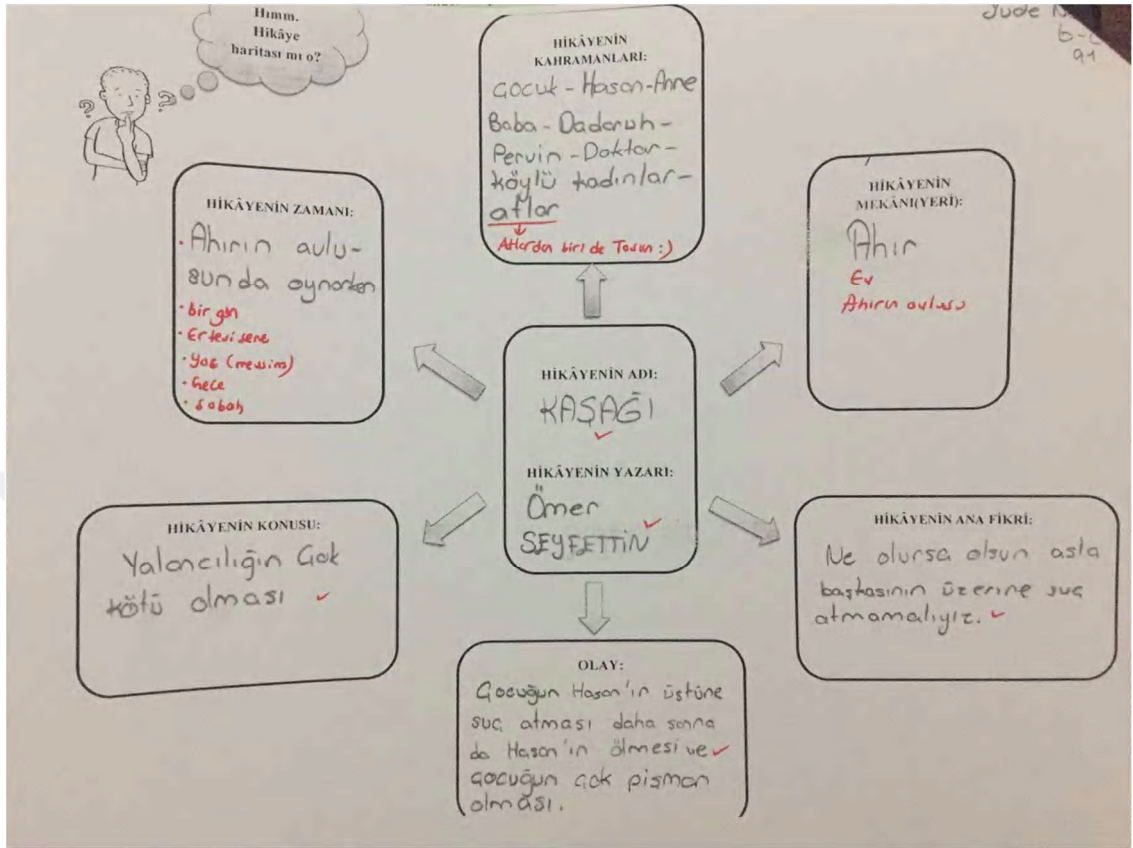 Hımm.
Hikâye
haritası mı o?
?
?
Jude
6-
91
HİKÂYENİN
KAHRAMANLARI:
Çocuk - Hasan - Anne
Baba - Dadaruh -
Pervin - Doktor -
köylü kadınlar -
atlar
Atlardan biri de Tosun :)
HİKÂYENİN ZAMANI:
• Ahırın avlu-
sunda oynarken
• bir gün
• Ertesi sene
• Yaz (mevsim)
• Gece
• Sabah
HİKÂYENİN
MEKÂNI(YERİ):
Ahır
Ev
Ahırın avlusu
HİKÂYENİN ADI:
KAŞAĞI
HİKÂYENİN YAZARI:
Ömer
SEYFETTİN
HİKÂYENİN KONUSU:
Yalancılığın Çok
kötü olması
HİKÂYENİN ANA FİKRİ:
Ne olursa olsun asla
başkasının üzerine suç
atmamalıyız.
OLAY:
Çocuğun Hasan'ın üstüne
suç atması daha sonra
da Hasan'ın ölmesi ve
çocuğun çok pişman
olması.